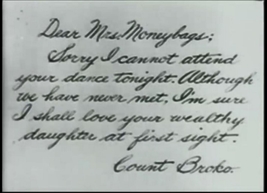 Dear Mrs. Moneybags:
Sorry I cannot attend
your dance tonight. Although
we have never met, I'm sure
I shall love your wealthy
daughter at first sight.
Count Broko.